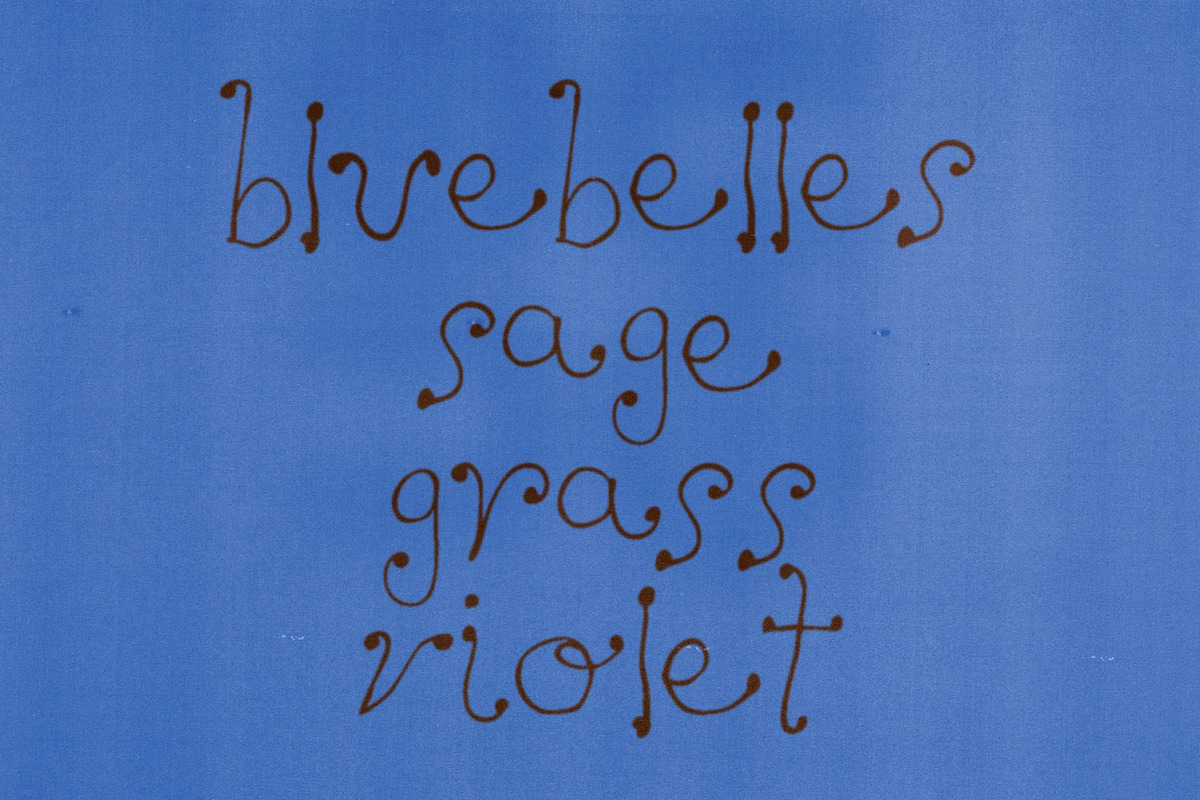 bluebelles
sage
grass
violet